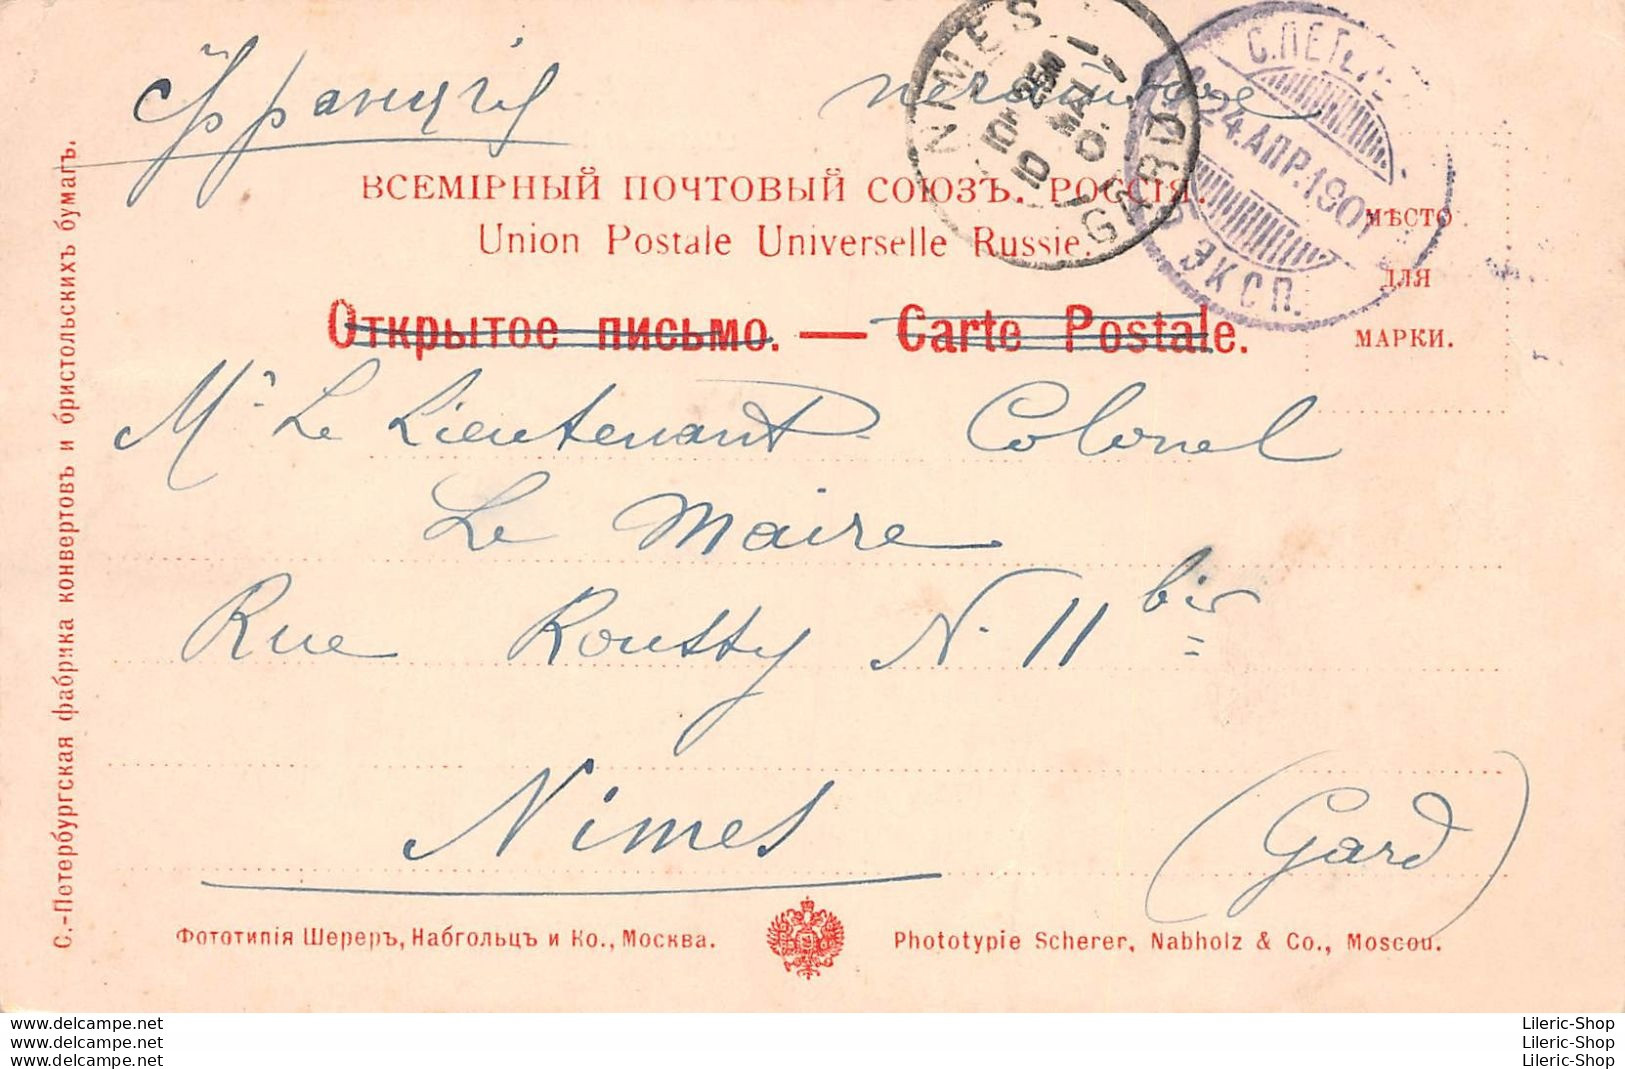 Франція печатное
ВСЕМІРНЫЙ ПОЧТОВЫЙ СОЮЗЪ. РОССІЯ.
Union Postale Universelle Russie.
Открытое письмо. — Carte Postale.
МѢСТО
ДЛЯ
МАРКИ.
NIMES
GARD
24.АПР.1901
ЭКСП.
Mr Le Lieutenant Colonel
Le Maire
Rue Roussy N. 11 bis
Nimes (Gard)
С.-Петербургская фабрика конвертовъ и бристольскихъ бумагъ.
Фототипія Шереръ, Набгольцъ и Ко., Москва.
Phototypie Scherer, Nabholz & Co., Moscou.
www.delcampe.net
www.delcampe.net
www.delcampe.net
Lileric-Shop
Lileric-Shop
Lileric-Shop